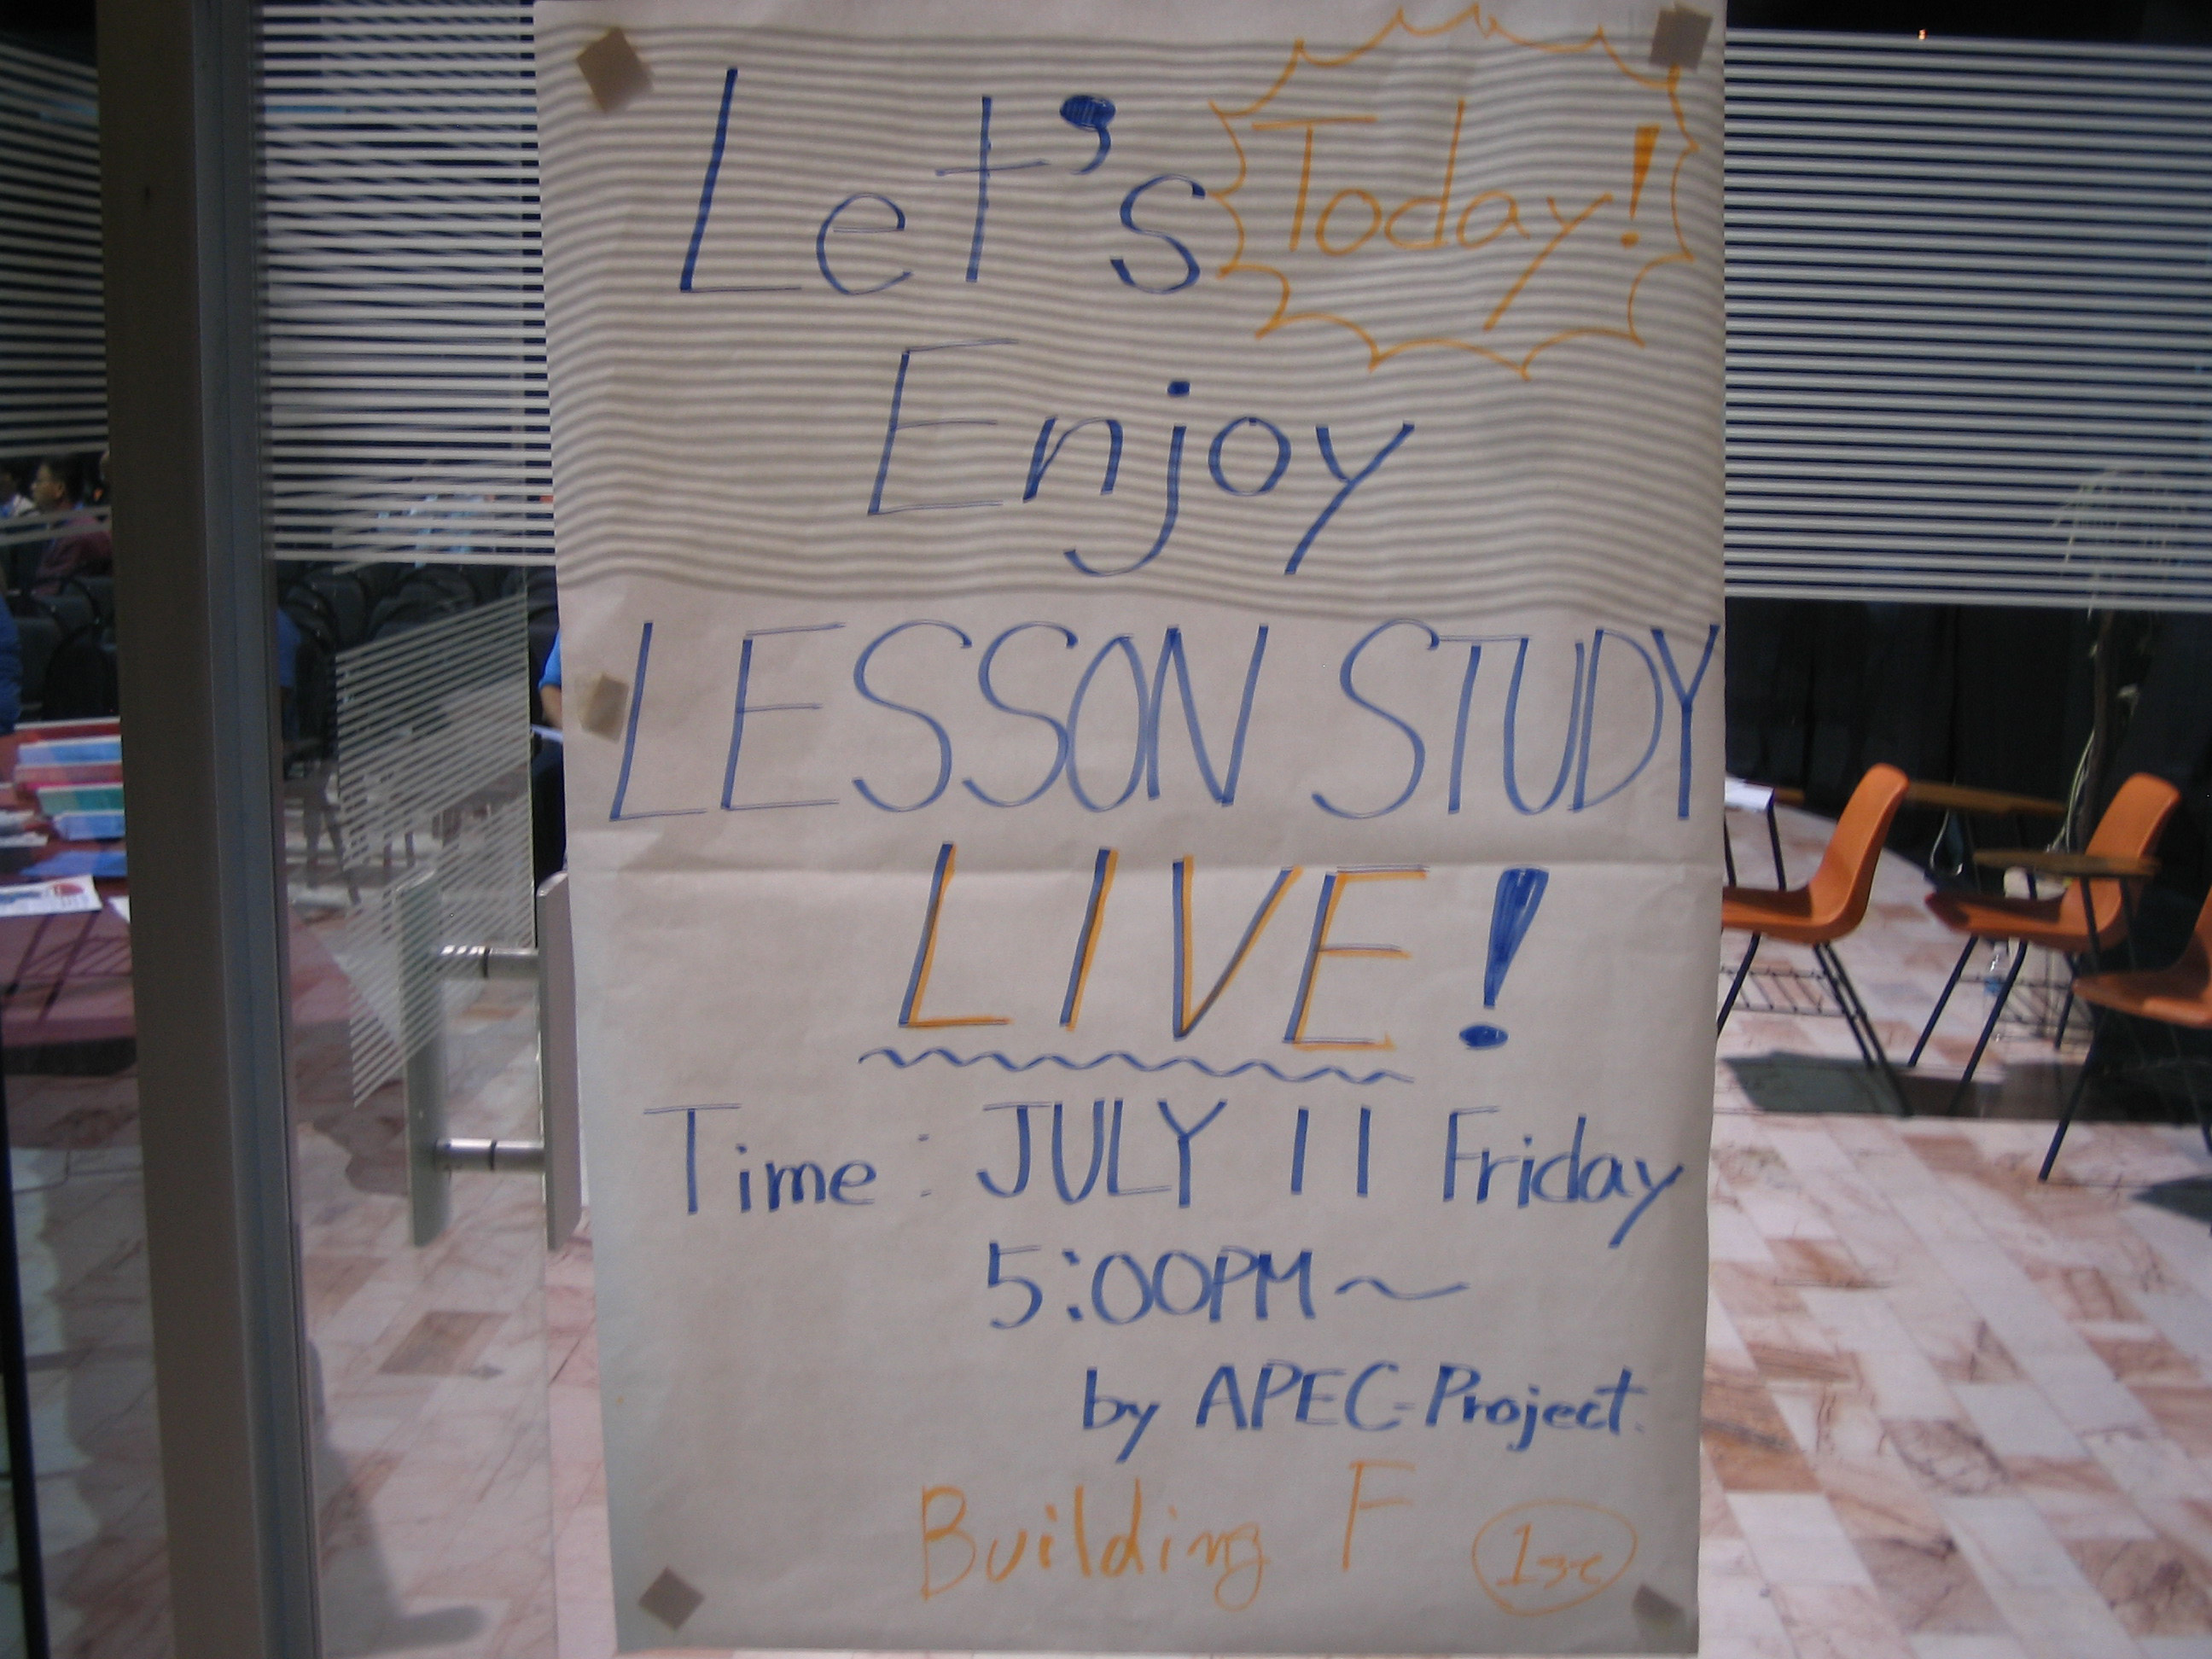 Let's Today!
Enjoy
LESSON STUDY
LIVE!
Time: JULY 11 Friday
5:00PM~
by APEC-Project.
Building F